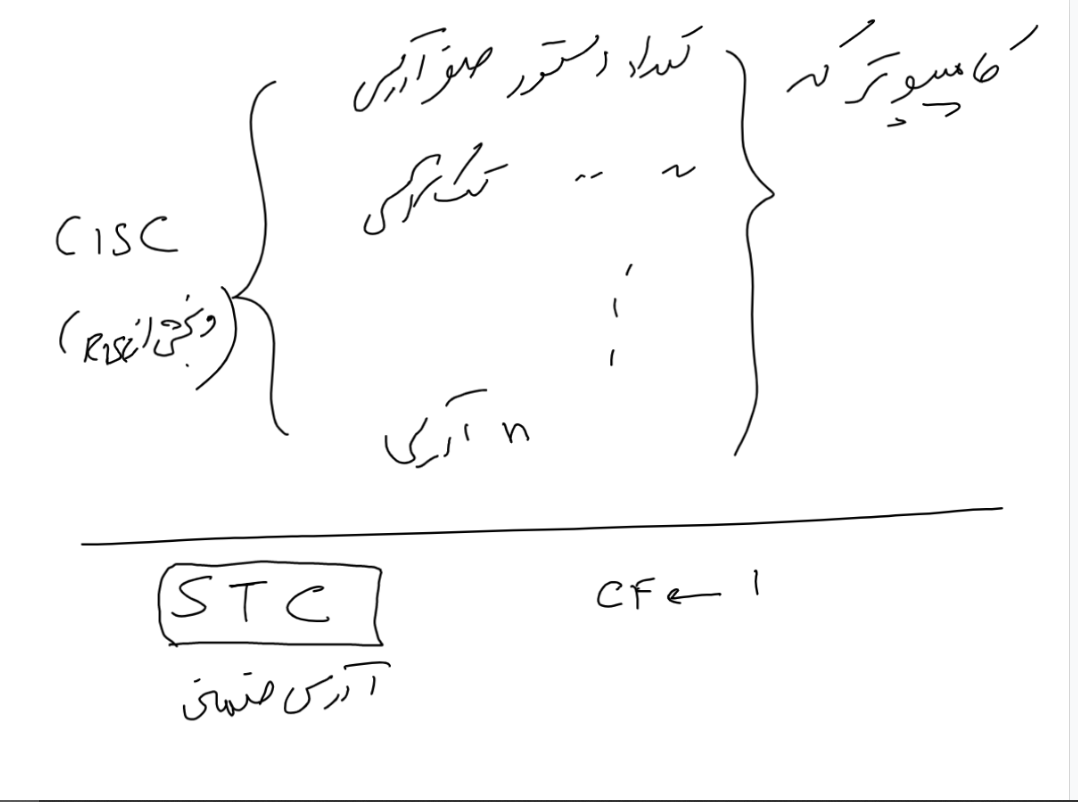 کامپیوتر که
تعداد دستور صفر آدرسی
~ -- تک آدرسی
n آدرسی
CISC
(RISC)
STC
CF ← 1
آدرس ضمنی